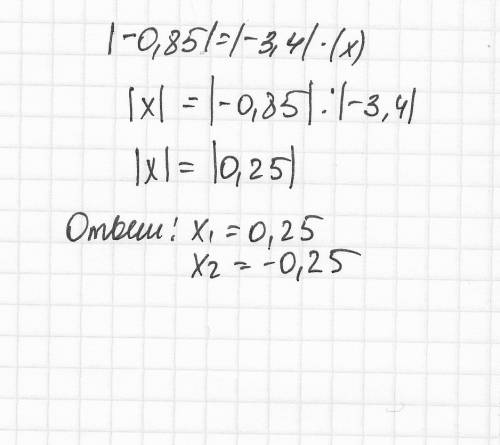 |-0,85|=|-3,4|·(x)
|x| = |-0,85| : |-3,4|
|x| = |0,25|
Ответ: x₁ = 0,25
x₂ = -0,25